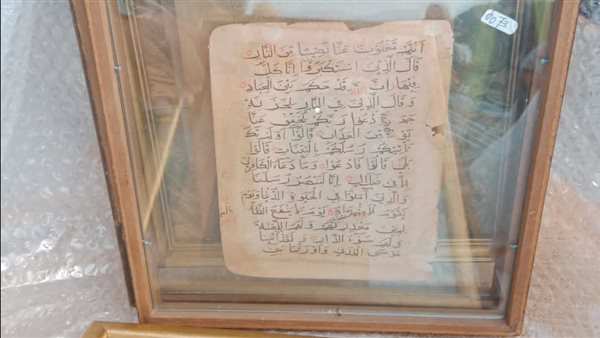 انتم مغنون عنا نصيبا من النار
قال الذين استكبروا انا كل
فيها ان الله قد حكم بين العباد
وقال الذين في النار لخزنة
جهنم ادعوا ربكم يخفف عنا
يوما من العذاب قالوا اولم تك
تاتيكم رسلكم بالبينات قالوا
بلى قالوا فادعوا وما دعاء الكافرين
الا في ضلال انا لننصر رسلنا
والذين امنوا في الحيوة الدنيا ويوم
يقوم الاشهاد يوم لا ينفع الظا
لمين معذرتهم ولهم اللعنة
ولهم سوء الدار ولقد اتينا
موسى الهدى واورثنا بني